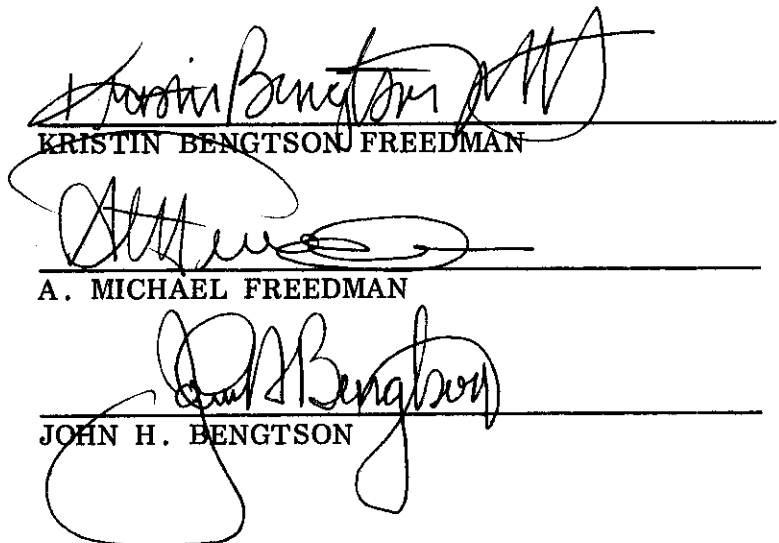 Kristin Bengtson
KRISTIN BENGTSON FREEDMAN
A. MICHAEL FREEDMAN
John H Bengtson
JOHN H. BENGTSON